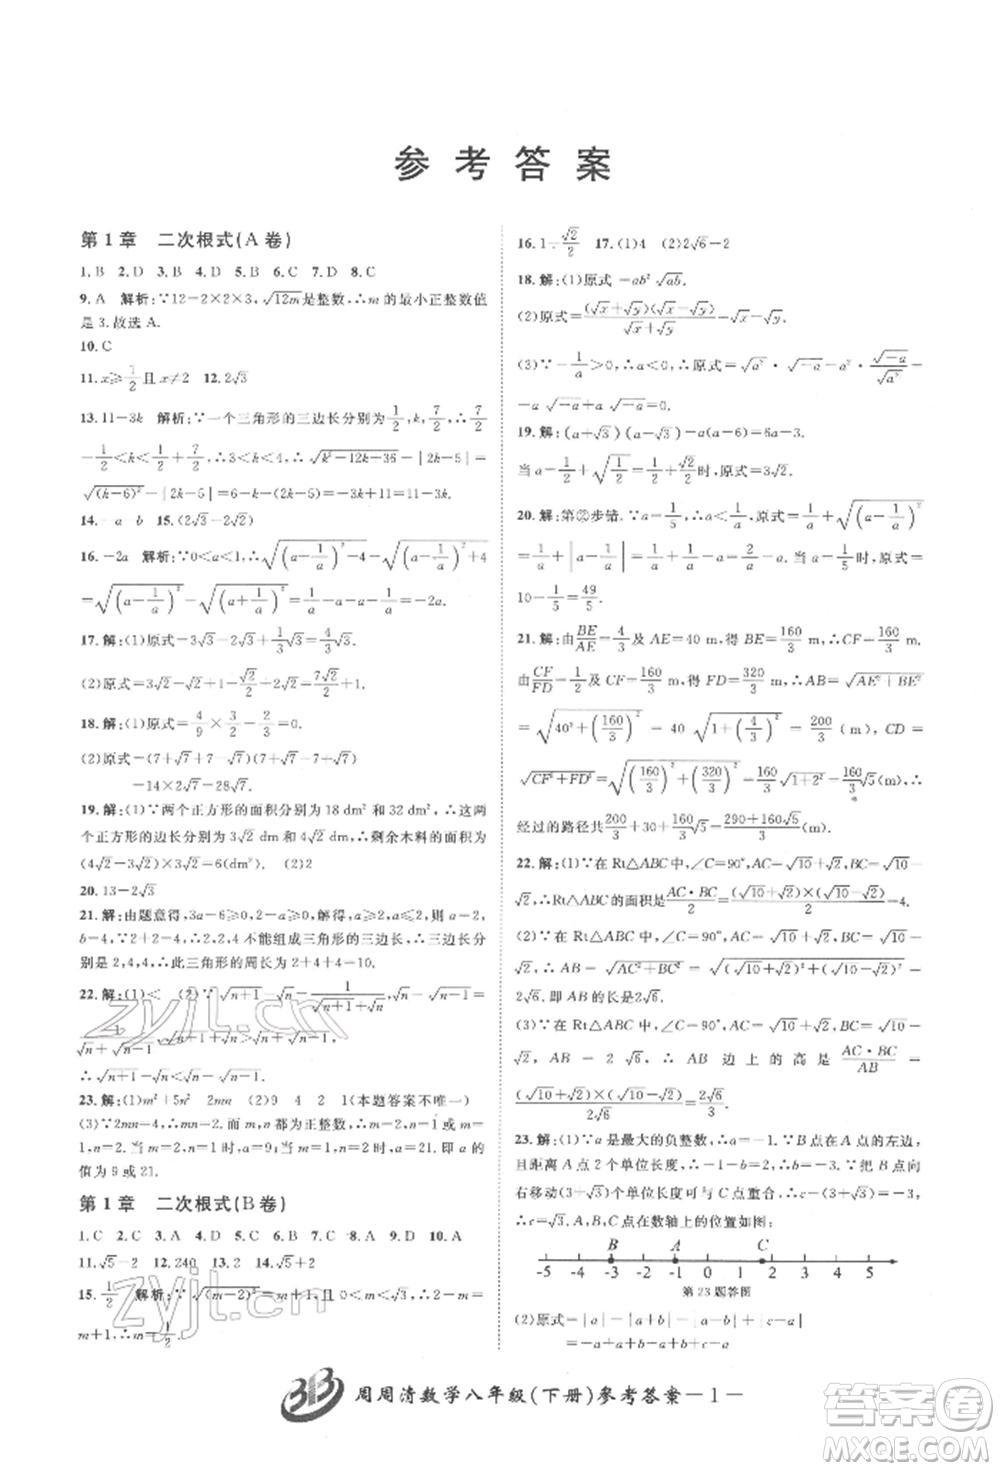 参考答案
第1章 二次根式(A卷)
1.B 2.D 3.B 4.D 5.B 6.C 7.D 8.C
9.A 解析:∵12=2×2×3,√(12m)是整数,∴m的最小正整数值
是3.故选A.
10.C
11.x≥1/2且x≠2 12.2√3
13.11-3k 解析:∵一个三角形的三边长分别为1/2,k,7/2,∴7/2
-1/2<k<1/2+7/2,∴3<k<4.∴√(k²-12k+36)-|2k-5|=
√((k-6)²)-|2k-5|=6-k-(2k-5)=11-3k.
14.-a b 15.(2√3-2)a
16.-2a 解析:∵0<a<1,∴√((a-1/a)²+4)-√((a+1/a)²-4)
17.解:(1)原式=3√3-2√3+(1/3)√3=(4/3)√3.
(2)原式=3√2-√2/2+2√2=
18.解:(1)原式=4/9×3/2-2/3=0.
(2)原式=(7+√7)√7(√7)(7-√7)
=14×2√7=28√7.
19.解:(1)∵两个正方形的面积分别为18 dm²和32 dm²,∴这两
个正方形的边长分别为3√2 dm和4√2 dm,∴剩余木料的面积为
(4√2-3√2)×3√2=6(dm²) (2)2
20.13-2√3
21.解:由题意得,3a-6≥0,2-a≥0,解得a=2,则b=4.∵a=2,
b=4,∵2+2=4不能组成三角形的三边长,∴此三角形的三边长分
别是2,4,4,∴此三角形的周长为2+4+4=10.
22.解:(1)< (2)∵√(n+1)-√n=1/(√(n+1)+√n),
∴√(n+1)-√n<√n-√(n-1).
23.解:(1)m²+5n² 2mn (2)9 4 2 1(本题答案不唯一)
(3)∵2mn=4,∴mn=2.而m,n都为正整数,∴m=2,n=1或m=
1,n=2.当m=2,n=1时,a=9;当m=1,n=2时,a=21.即a的
值为9或21.
第1章 二次根式(B卷)
1.C 2.C 3.A 4.D 5.D 6.C 7.C 8.B 9.D 10.A
11.√5-2 12.240 13.2 14.√5+2
15.1/2 解析:∵√((m-2)²)=m+1,
m+1,∴m=1/2.
16.1-√2/2 17.(1)4 (2)2√6-2
18.解:(1)原式=ab²√(ab).
(2)原式=(√x+√y)(√x-√y)/(√x+√y)=√x-√y.
(3)∵-1/a>0,∴a<0,∴原式=
-a√(-a)=(1-a)√(-a).
19.解:(a+√3)(a-√3)-a(a-6)=6a-3.
当a=1/2+√(1/2)=1/2+√2/2时,原式=3√2.
20.解:第②步错.∵a=1/5,∴a<1/a,∴原式=1/a+√((a-1/a)²)
=1/a+|a-1/a|=1/a+1/a-a=2/a-a.当a=1/5时,原式=
10-1/5=49/5.
21.解:由BE/AE=4/3及AE=40 m,得BE=160/3 m.∴CF=160/3 m.
由CF/FD=1/2及CF=160/3 m,得FD=320/3 m,∴AB=√(AE²+BE²)
=√(40²+(160/3)²)=40√(1+(4/3)²)=200/3(m),CD=
√(CF²+FD²)=√((160/3)²+(320/3)²)=160/3√(1+2²)=160/3√5(m),∴
经过的路径共200/3+30+160/3√5=(290+160√5)/3(m).
22.解:(1)∵在Rt△ABC中,∠C=90°,AC=√10+√2,BC=√10-
√2,∴Rt△ABC的面积是AC·BC/2=(√10+√2)×(√10-√2)/2=4.
(2)∵在Rt△ABC中,∠C=90°,AC=√10+√2,BC=√10-
√2,∴AB=√(AC²+BC²)=√((√10+√2)²+(√10-√2)²)=
2√6.即AB的长是2√6.
(3)∵在Rt△ABC中,∠C=90°,AC=√10+√2,BC=√10-
√2,AB=2√6,∴AB边上的高是AC·BC/AB=
(√10+√2)×(√10-√2)/2√6=2√6/3.
23.解:(1)∵a是最大的负整数,∴a=-1.∵B点在A点的左边,
且距离A点2个单位长度,∴b=-1-2=-3.∵C点是由A点向
右移动(3-b)
-5 -4 -3 -2 -1 0 1 2 3 4 5
B A C
第23题答图
(2)原式=|a|-|a+b|+|c-b|-|a+c|
=-a+a+b+c-b-a-c=-a
周周清数学八年级(下册)参考答案—1—
zyjl.cn
zyjl.cn
答案圈
MXQE.COM